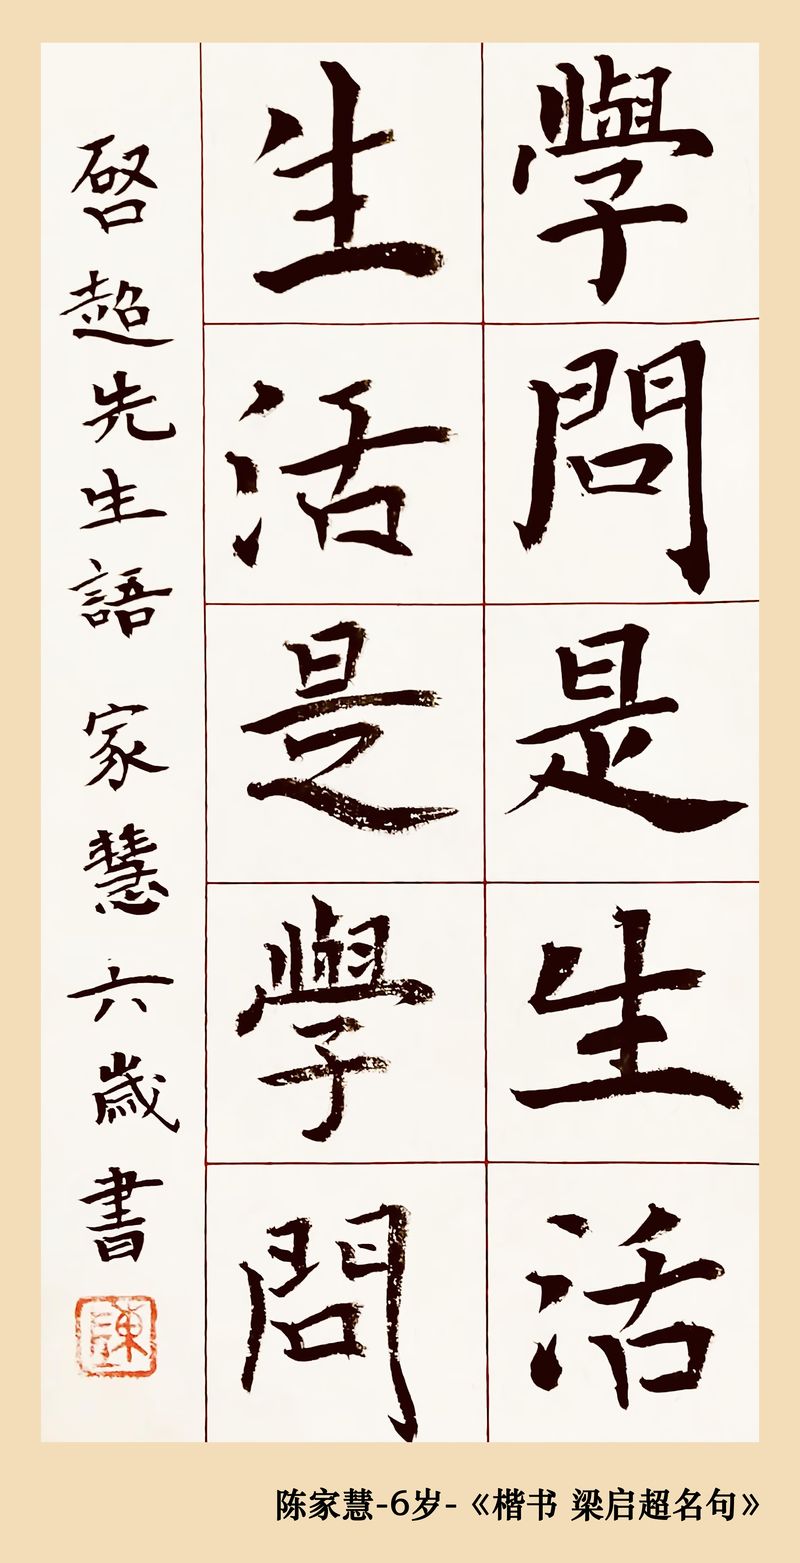 學問是生活
生活是學問
啓超先生語 家慧六歲書
陳
陈家慧-6岁-《楷书 梁启超名句》